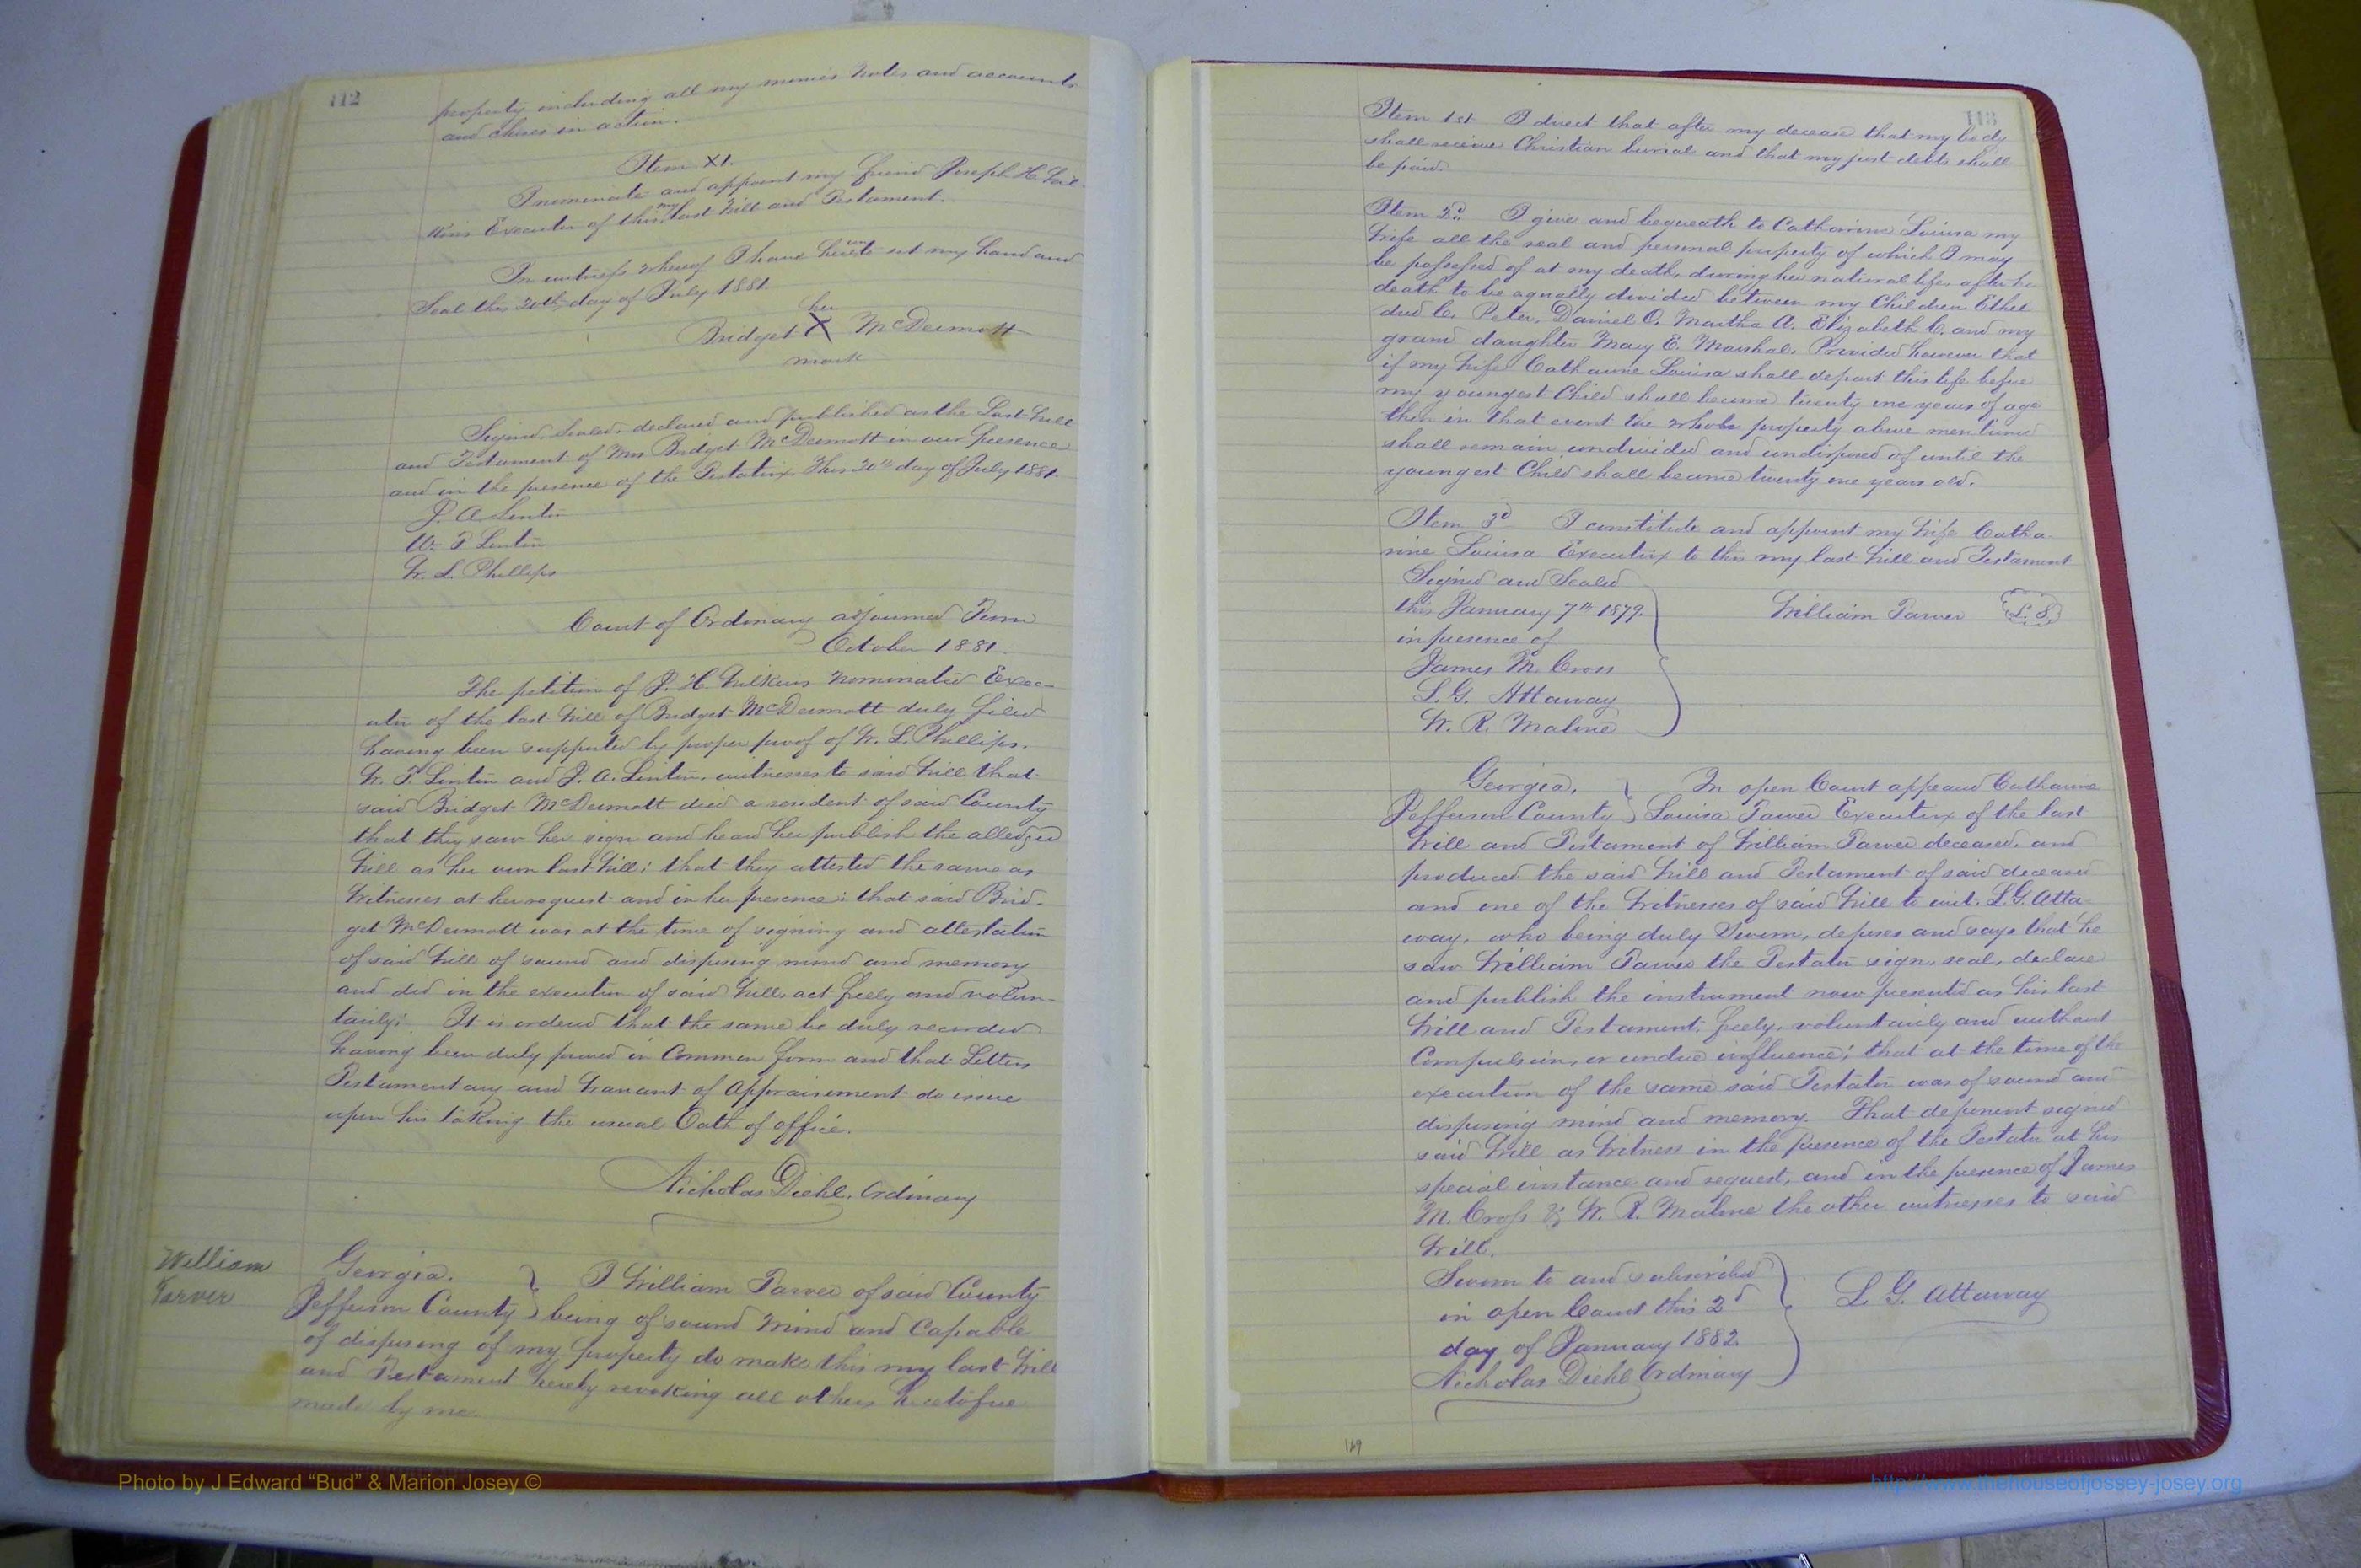 112
property including all my monies Notes and accounts
and choses in action.
Item XI.
I nominate and appoint my friend Joseph H. Wil-
kins Executor of this my last Will and Testament.
In witness whereof I have hereunto set my hand and
Seal this 20th day of July 1881.
her
Bridget X McDermott
mark
Signed, Sealed, declared and published as the Last Will
and Testament of Mrs Bridget McDermott in our presence
and in the presence of the Testatrix. This 20th day of July 1881.
J. A. Linton
W. T. Linton
W. L. Phillips
Court of Ordinary adjourned Term
October 1881.
The petition of J. H. Wilkins Nominated Exec-
utor of the last Will of Bridget McDermott duly filed
having been supported by proper proof of W. L. Phillips.
W. T. Linton and J. A. Linton, witnesses to said Will that
said Bridget McDermott died a resident of said County
that they saw her sign and heard her publish the alledged
Will as her own last Will; that they attested the same as
Witnesses at her request and in her presence; that said Brid-
get McDermott was at the time of signing and attestation
of said Will of sound and disposing mind and memory
and did in the execution of said Will, act freely and volun-
tarily; It is ordered that the same be duly recorded
having been duly proved in Common form and that Letters
Testamentary and Warrant of Appraisement do issue
upon his taking the usual Oath of office.
Nicholas Diehl. Ordinary
William
Tarver
Georgia. } I William Tarver of said County
Jefferson County } being of sound Mind and Capable
of disposing of my property do make this my last Will
and Testament hereby revoking all others heretofore
made by me.
113
Item 1st I direct that after my decease that my body
shall receive Christian burial and that my just debts shall
be paid.
Item 2d. I give and bequeath to Catharine Louisa my
Wife all the real and personal property of which I may
be possessed of at my death, during her natural life, after he
death to be equally divided between my Children Ethel
dred C. Peter, Daniel O. Martha A. Elizabeth C. and my
grand daughter Mary E. Marshal. Provided however that
if my Wife Catharine Louisa shall depart this life before
my youngest Child shall become twenty one years of age
then in that event the whole property above mentioned
shall remain undivided and undisposed of until the
youngest Child shall become twenty one years old.
Item 3d I constitute and appoint my Wife Catha-
rine Louisa Executrix to this my last Will and Testament
Signed and Sealed
this January 7th 1879. William Tarver L. S.
in presence of
James M. Cross
L. G. Attaway
W. R. Malone
Georgia. } In open Court appeared Catharine
Jefferson County } Louisa Tarver Executrix of the last
Will and Testament of William Tarver deceased. and
produced the said Will and Testament of said deceased
and one of the Witnesses of said Will to wit: L. G. Atta-
way, who being duly Sworn, deposes and says that he
saw William Tarver the Testator sign, seal, declare
and publish the instrument now presented as his last
Will and Testament; freely, voluntarily and without
Compulsion, or undue influence; that at the time of the
execution of the same said Testator was of sound and
disposing mind and memory. That deponent signed
said Will as Witness in the presence of the Testator at his
special instance and request, and in the presence of James
M. Cross & W. R. Malone the other witnesses to said
Will.
Sworn to and subscribed
in open Court this 2d L. G. Attaway
day of January 1882
Nicholas Diehl Ordinary
129
Photo by J Edward “Bud” & Marion Josey ©
http://www.thehouseofjossey-josey.org